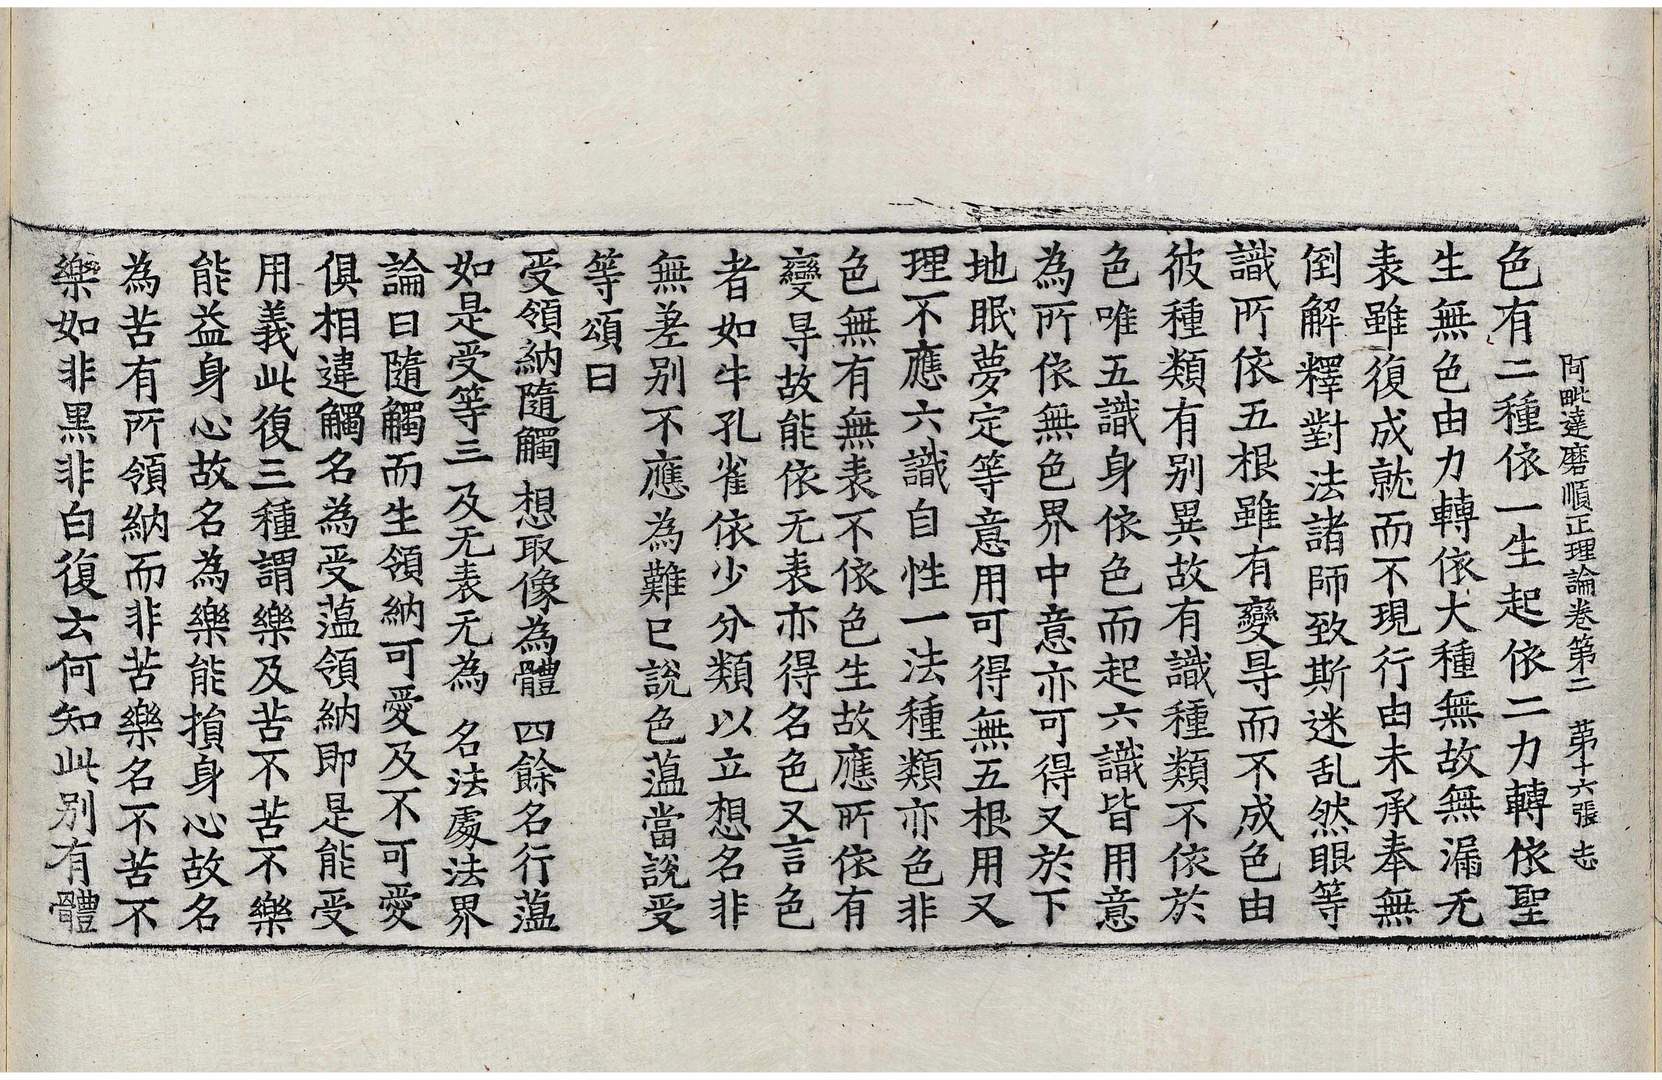 阿毗達磨順正理論卷第二 第十六張 志
色有二種依一生起依二力轉依聖
生無色由力轉依大種無故無漏无
表雖復成就而不現行由未承奉無
倒解釋對法諸師致斯迷乱然眼等
識所依五根雖有變㝵而不成色由
彼種類有別異故有識種類不依於
色唯五識身依色而起六識皆用意
為所依無色界中意亦可得又於下
地眠夢定等意用可得無五根用又
理不應六識自性一法種類亦色非
色無有無表不依色生故應所依有
變㝵故能依无表亦得名色又言色
者如牛孔雀依少分類以立想名非
無差別不應為難已說色蘊當說受
等頌曰
受領納隨觸 想取像為體 四餘名行蘊
如是受等三 及无表无為 名法處法界
論曰隨觸而生領納可愛及不可愛
俱相違觸名為受蘊領納即是能受
用義此復三種謂樂及苦不苦不樂
能益身心故名為樂能損身心故名
為苦有所領納而非苦樂名不苦不
樂如非黑非白復云何知此別有體